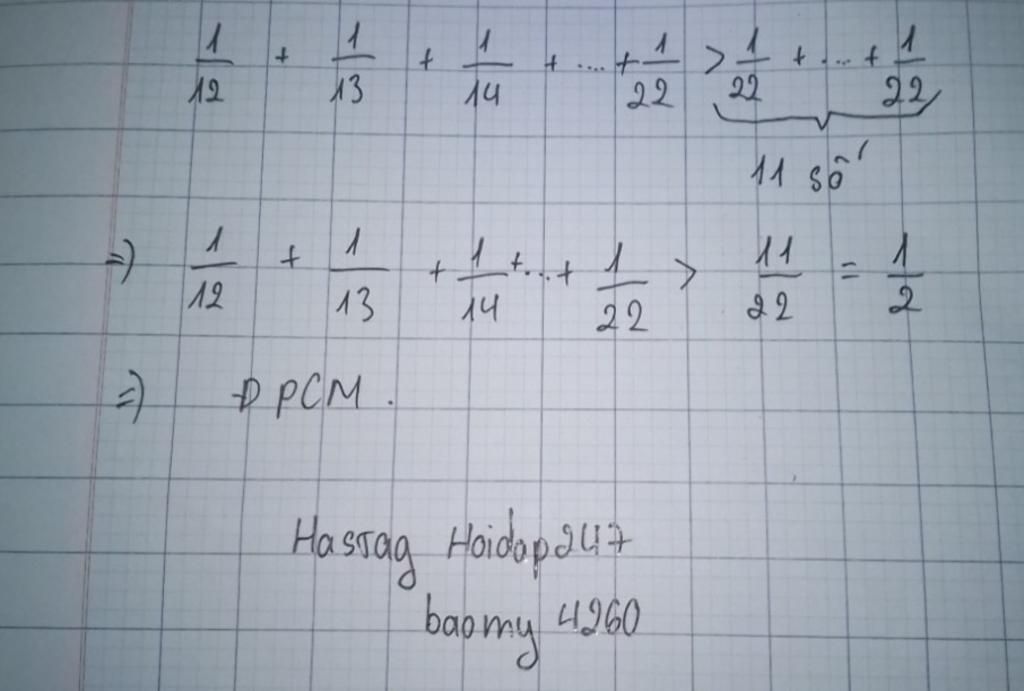 1/12 + 1/13 + 1/14 + .... + 1/22 > 1/22 + ... + 1/22
11 số
=) 1/12 + 1/13 + 1/14 + ... + 1/22 > 11/22 = 1/2
=) ĐPCM.
Hastag Hoidap247
baomy 4260